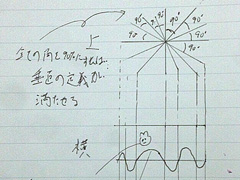 上
90° 90° 90° 90°
90° 90°
90°
全ての角を90°にすれば
垂直の定義が
満たせる
横